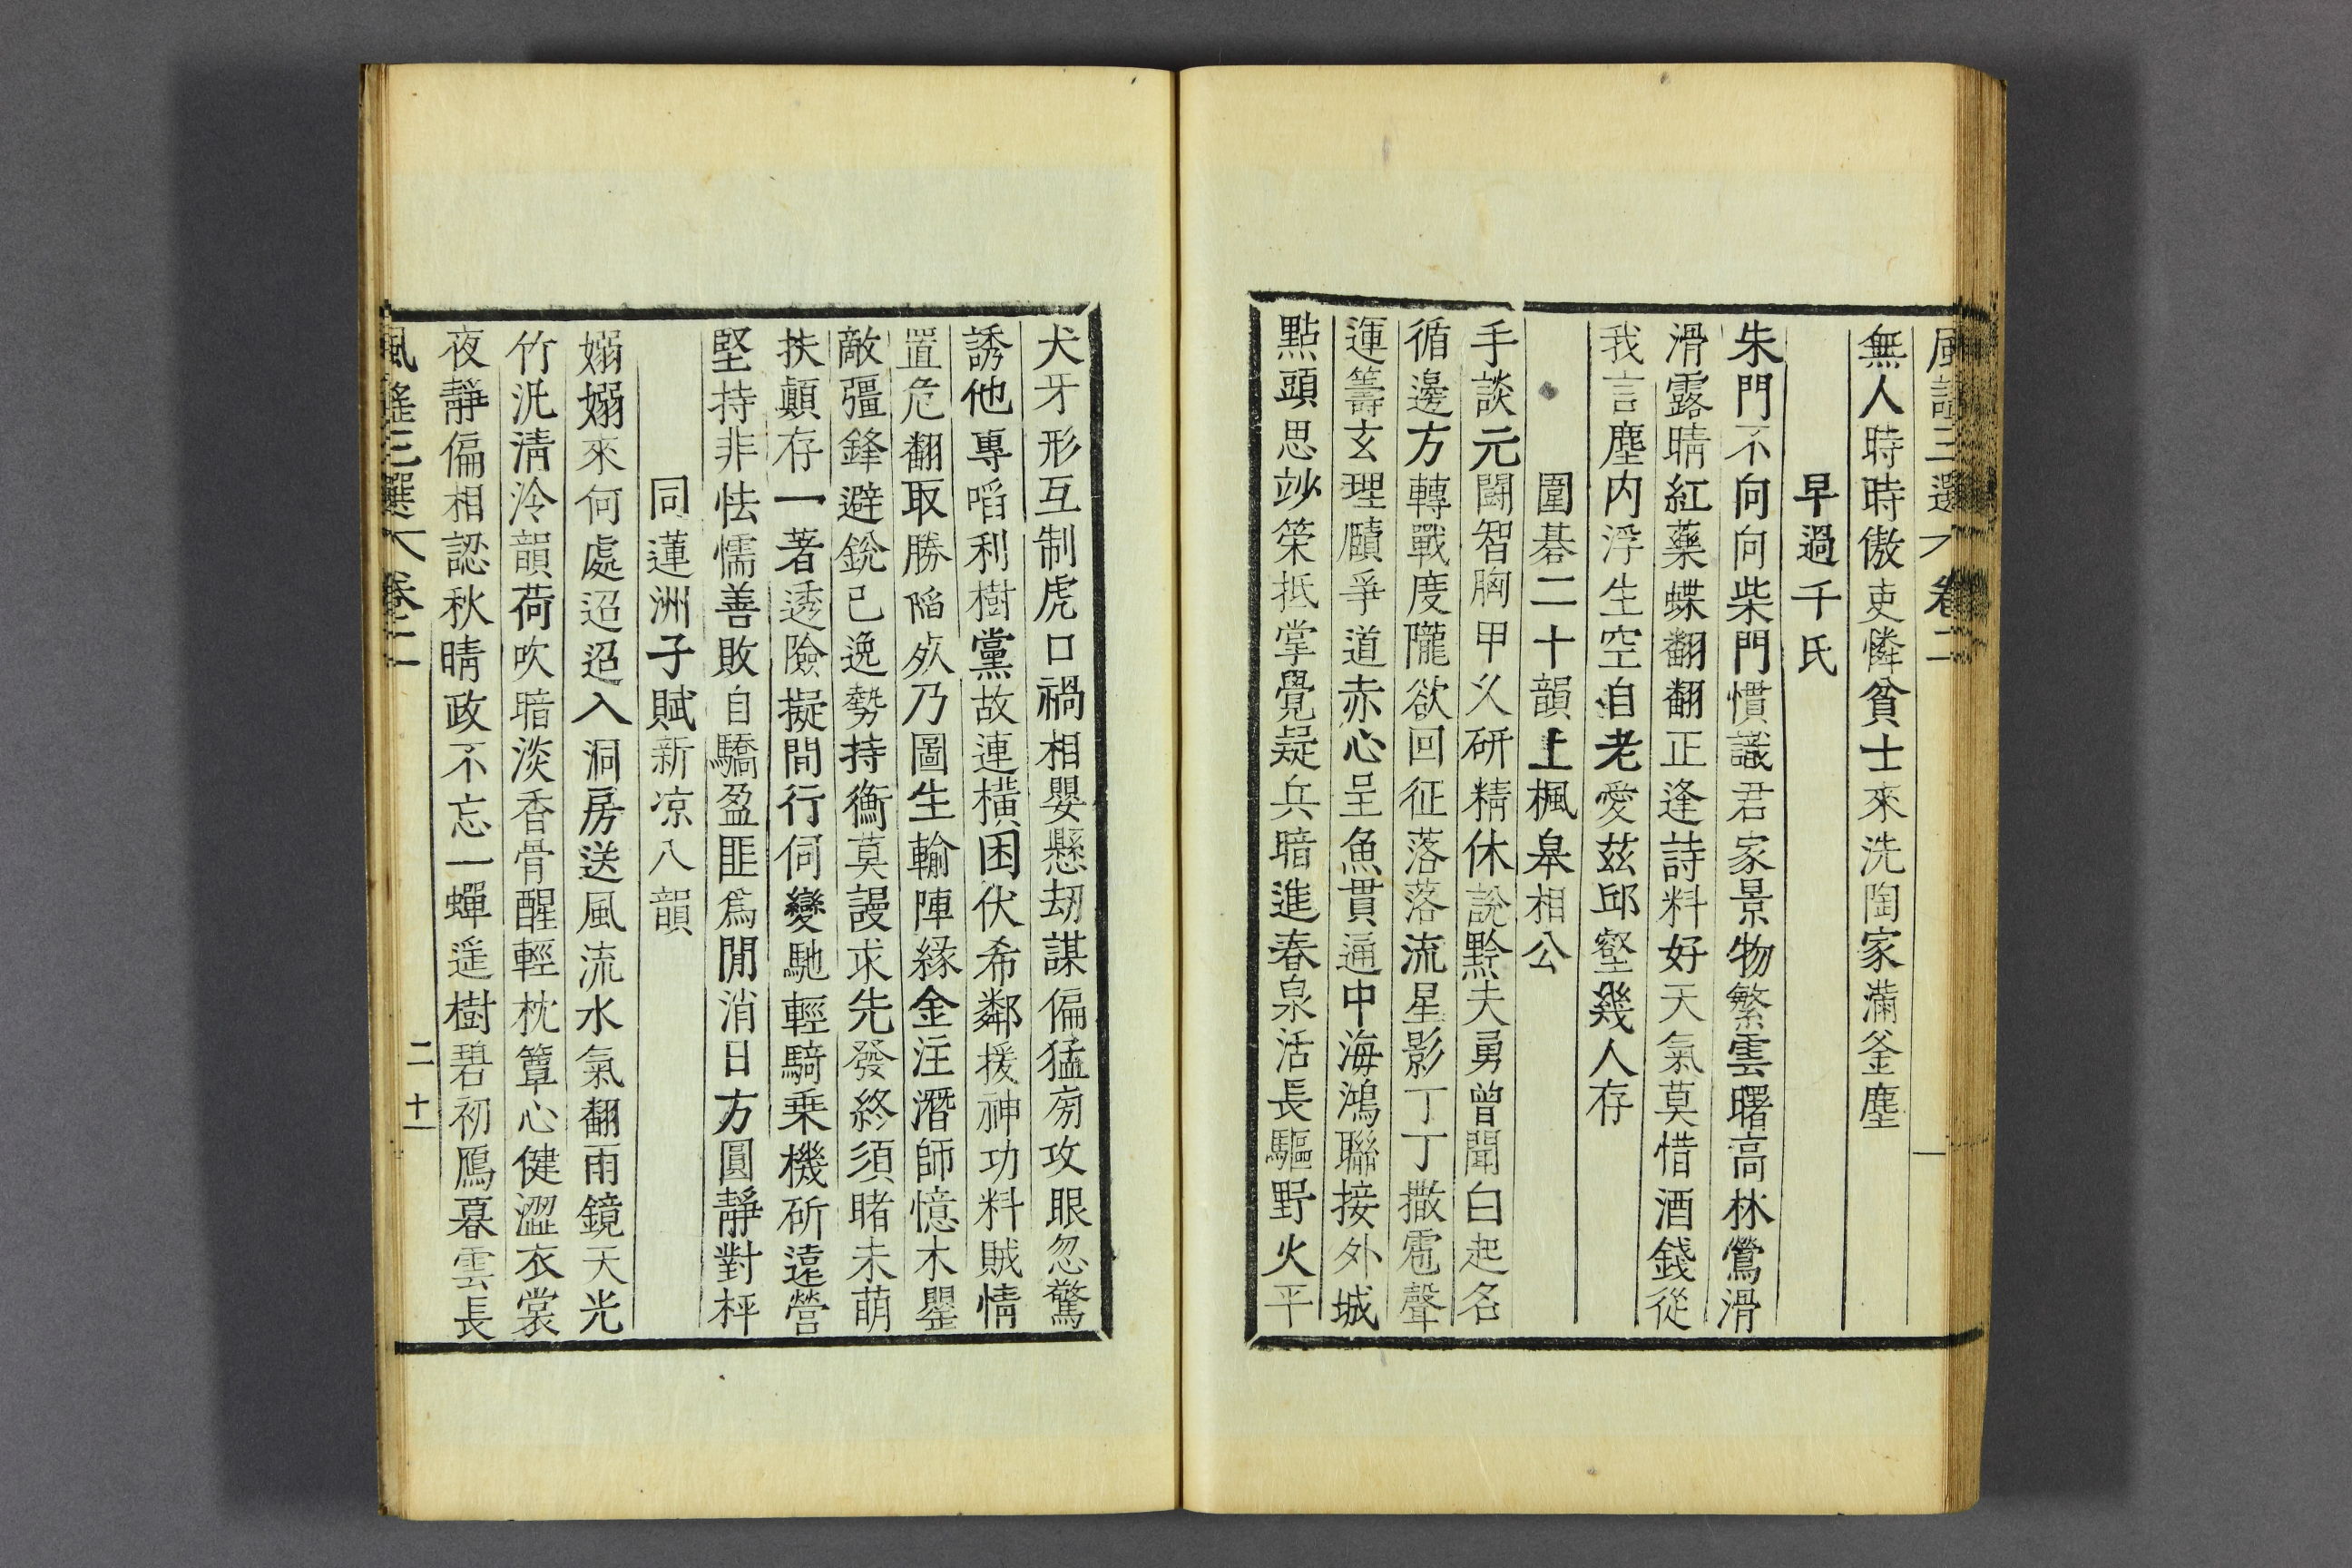 風謠三選 卷二
無人時時傲吏憐貧士來洗陶家滿釜塵
早過千氏
朱門不向向柴門慣識君家景物繁雲曙高林鶯滑
滑露晴紅藥蝶翻翻正逢詩料好天氣莫惜酒錢從
我言塵内浮生空自老愛茲邱壑幾人存
圍碁二十韻上楓皋相公
手談元鬪智胸甲乆研精休說黥夫勇曾聞白起名
循邊方轉戰度隴欲回征落落流星影丁丁撒雹聲
運籌玄理賾爭道赤心呈魚貫通中海鴻聯接外城
點頭思竗筞抵掌覺疑兵暗進春泉活長驅野火平
犬牙形互制虎口禍相嬰懸刼謀偏猛旁攻眼忽驚
誘他專啗利樹黨故連橫困伏希鄰援神功料賊情
置危翻取勝陷㱥乃圖生輸陣緣金注潛師憶木罌
敵彊鋒避銳已逸勢持衡莫謾求先發終須睹未萌
扶顛存一著透險擬間行伺變馳輕騎乗機斫遠營
堅持非怯懦善敗自驕盈匪爲閒消日方圓靜對枰
同蓮洲子賦新凉八韻
嫋嫋來何處迢迢入洞房送風流水氣翻雨鏡天光
竹汎淸泠韻荷吹暗淡香骨醒輕枕簟心健澀衣裳
夜靜偏相認秋晴政不忘一蟬遥樹碧初鴈暮雲長
風謠三選 卷二 二十一